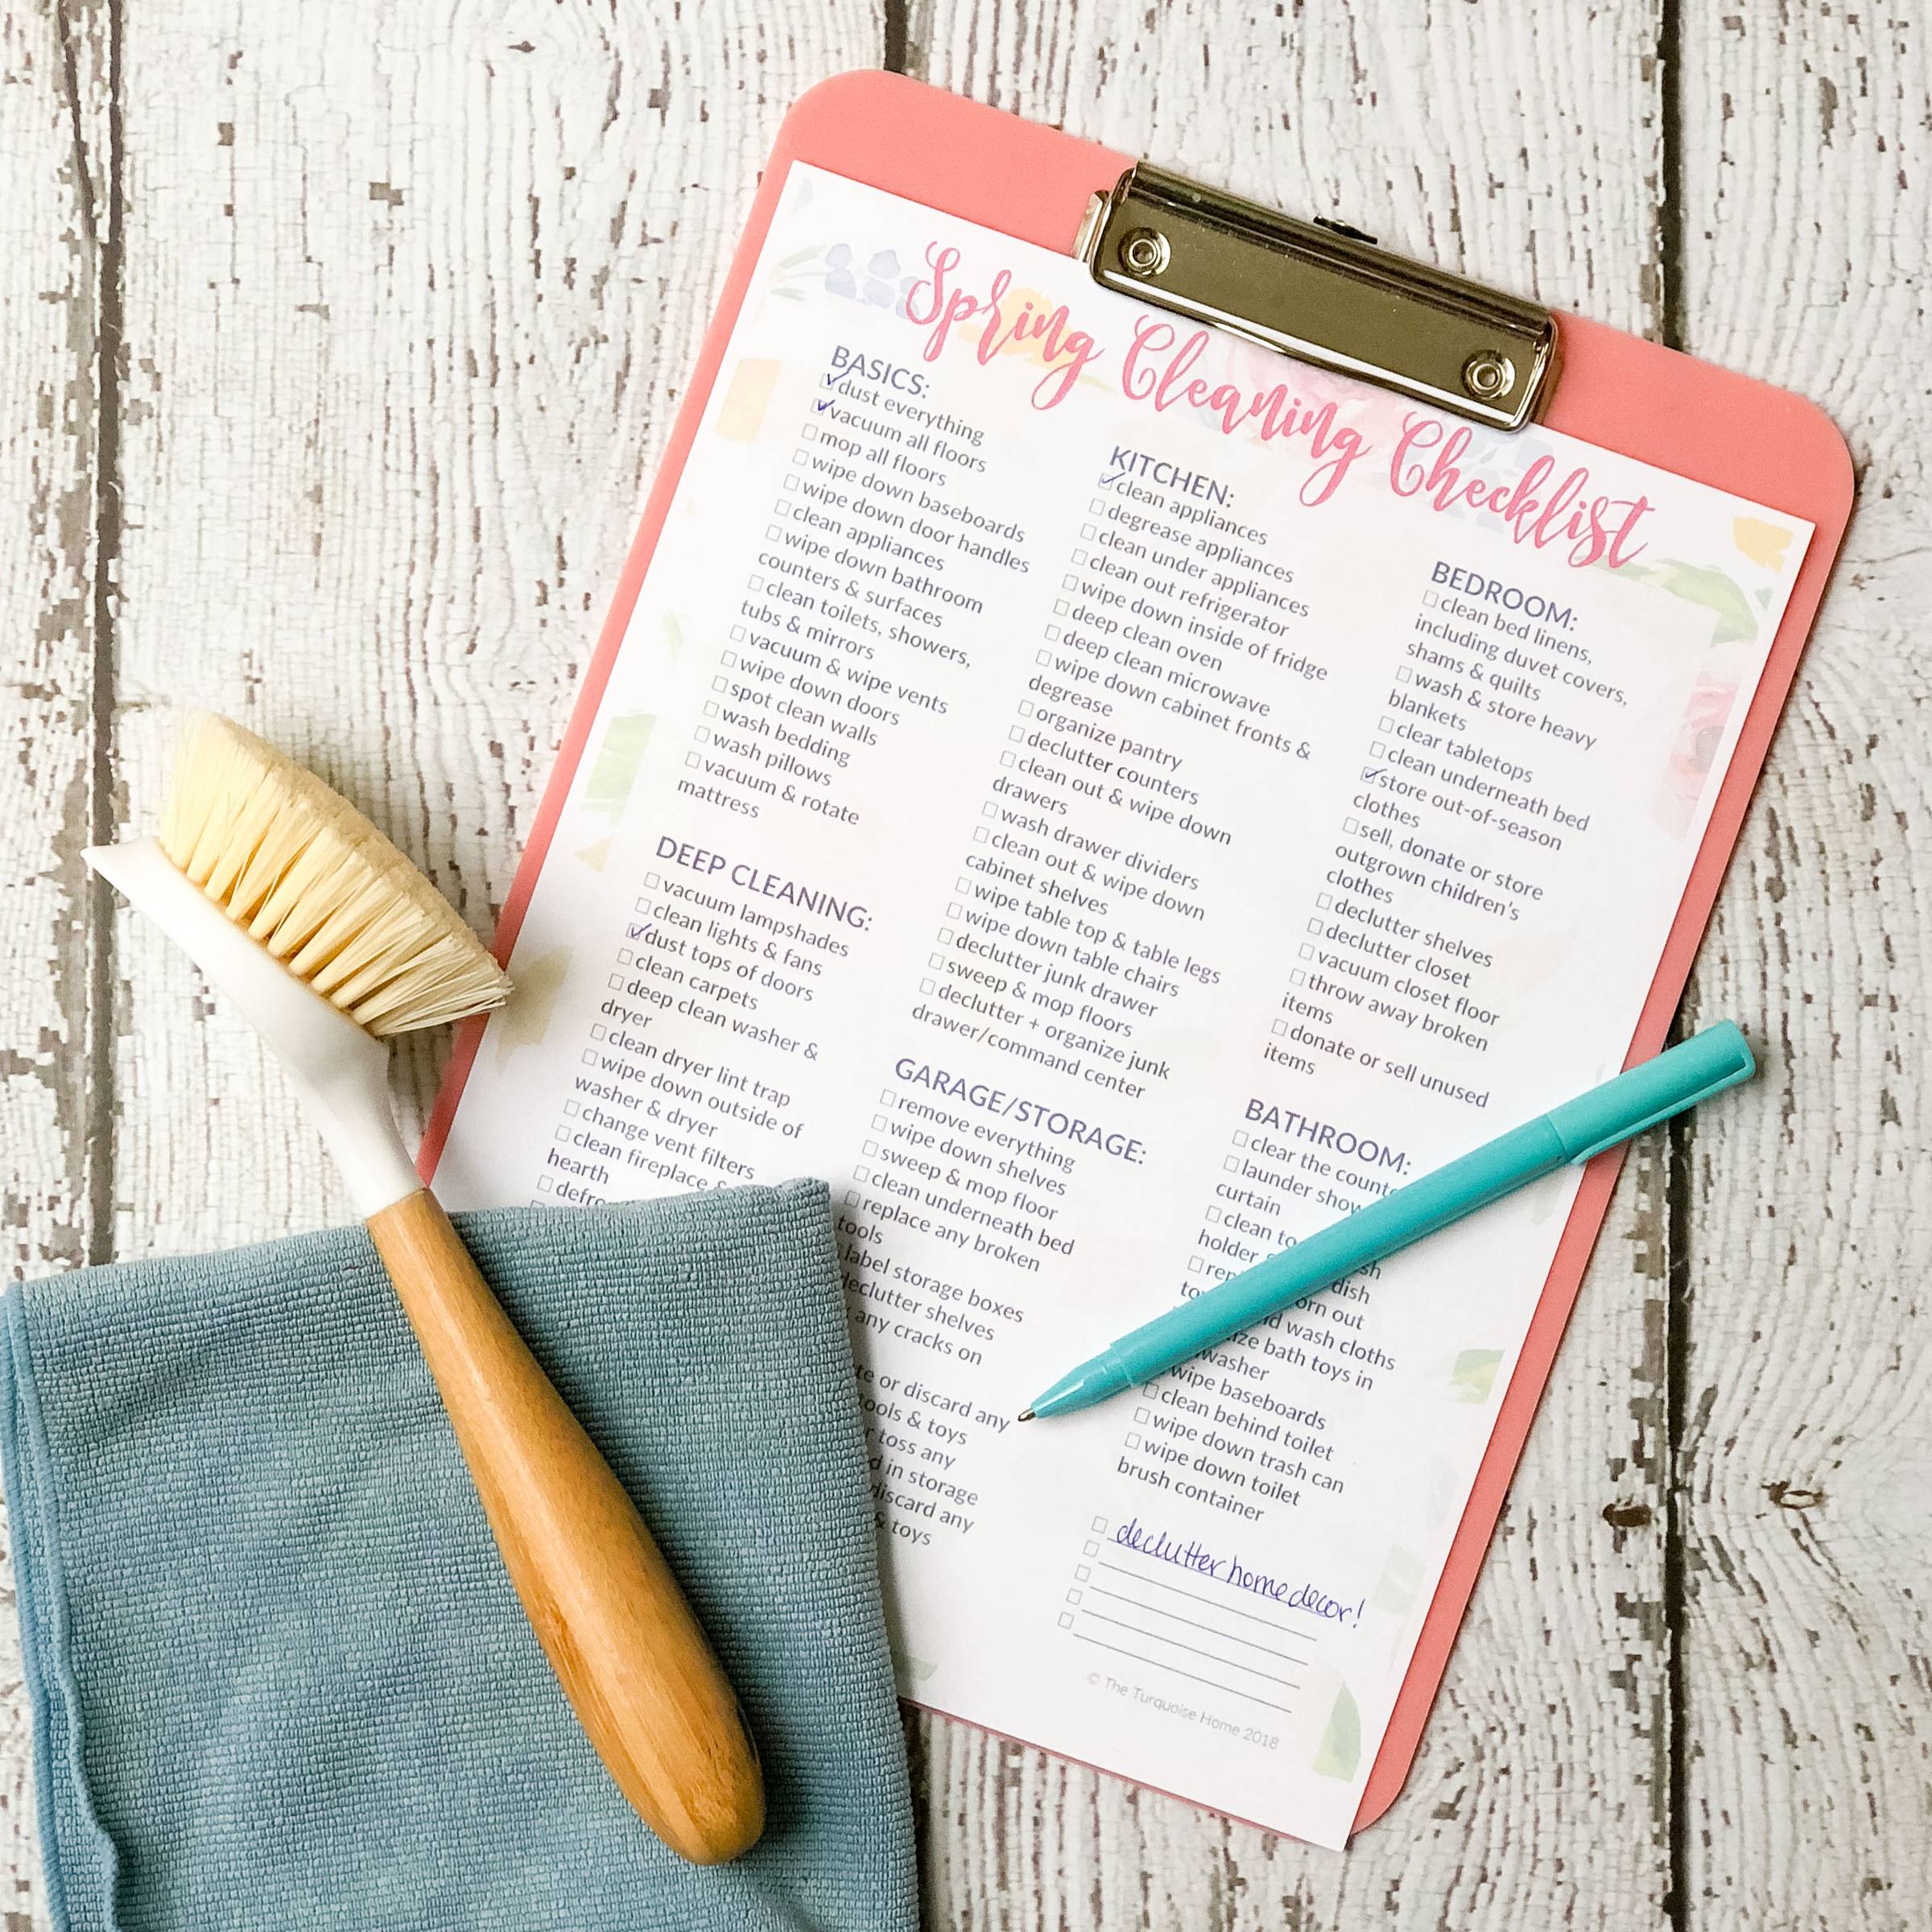 Spring Cleaning Checklist
BASICS:
dust everything
vacuum all floors
mop all floors
wipe down baseboards
wipe down door handles
clean appliances
wipe down bathroom
counters & surfaces
clean toilets, showers,
tubs & mirrors
vacuum & wipe vents
wipe down doors
spot clean walls
wash bedding
wash pillows
vacuum & rotate
mattress
DEEP CLEANING:
vacuum lampshades
clean lights & fans
dust tops of doors
clean carpets
deep clean washer &
dryer
clean dryer lint trap
wipe down outside of
washer & dryer
change vent filters
clean fireplace &
hearth
KITCHEN:
clean appliances
degrease appliances
clean under appliances
clean out refrigerator
wipe down inside of fridge
deep clean oven
deep clean microwave
wipe down cabinet fronts &
degrease
organize pantry
declutter counters
clean out & wipe down
drawers
wash drawer dividers
clean out & wipe down
cabinet shelves
wipe table top & table legs
wipe down table chairs
declutter junk drawer
sweep & mop floors
declutter + organize junk
drawer/command center
GARAGE/STORAGE:
remove everything
wipe down shelves
sweep & mop floor
clean underneath bed
replace any broken
tools
label storage boxes
declutter shelves
any cracks on
or discard any
tools & toys
toss any
in storage
discard any
& toys
BEDROOM:
clean bed linens,
including duvet covers,
shams & quilts
wash & store heavy
blankets
clear tabletops
clean underneath bed
store out-of-season
clothes
sell, donate or store
outgrown children's
clothes
declutter shelves
declutter closet
vacuum closet floor
throw away broken
items
donate or sell unused
items
BATHROOM:
clear the
launder
curtain
clean
holder
dish
out
wash cloths
bath toys in
washer
wipe baseboards
clean behind toilet
wipe down trash can
wipe down toilet
brush container
declutter home decor!
© The Turquoise Home 2018